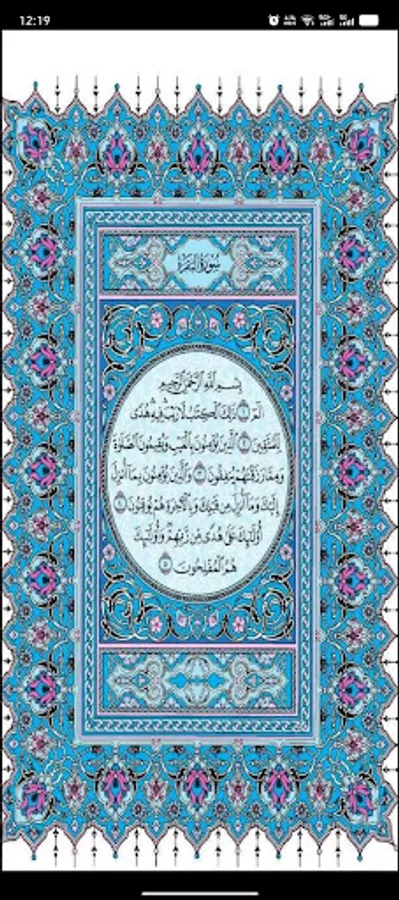 12:19
سُورَةُ البَقَرَةِ
بِسْمِ اللَّهِ الرَّحْمَٰنِ الرَّحِيمِ
الٓمٓ ١ ذَٰلِكَ الْكِتَٰبُ لَا رَيْبَ فِيهِ هُدًى
لِّلْمُتَّقِينَ ٢ الَّذِينَ يُؤْمِنُونَ بِالْغَيْبِ وَيُقِيمُونَ الصَّلَوٰةَ
وَمِمَّا رَزَقْنَٰهُمْ يُنفِقُونَ ٣ وَالَّذِينَ يُؤْمِنُونَ بِمَا أُنزِلَ
إِلَيْكَ وَمَا أُنزِلَ مِن قَبْلِكَ وَبِالْءَاخِرَةِ هُمْ يُوقِنُونَ ٤
أُوْلَٰئِكَ عَلَىٰ هُدًى مِّن رَّبِّهِمْ وَأُوْلَٰئِكَ
هُمُ الْمُفْلِحُونَ ٥